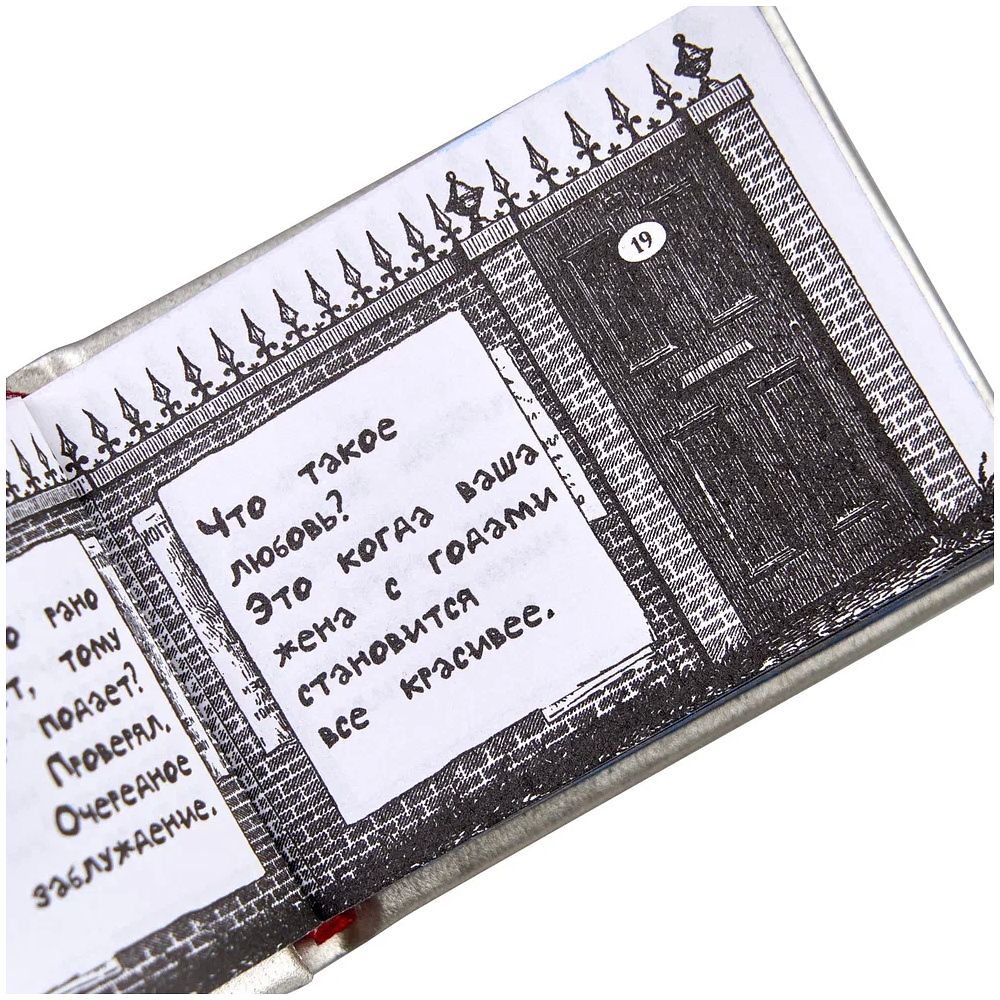 рано
тому
подает?
Проверял.
Очередное
заблуждение.
Что такое
любовь?
Это когда ваша
жена с годами
становится
все красивее.
19